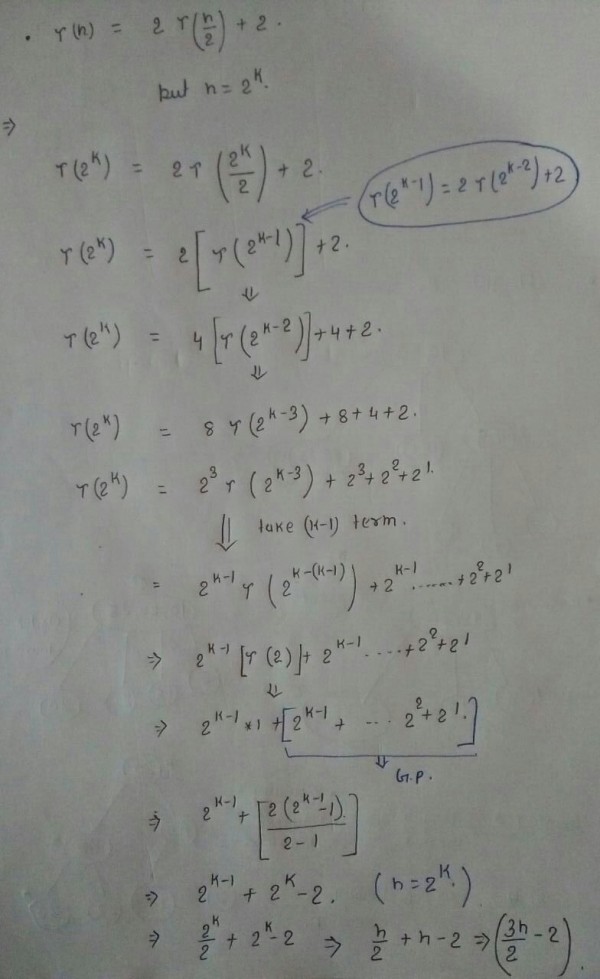 . T(n) = 2 T(n/2) + 2.
put n = 2^K.
⇒
T(2^K) = 2T (2^K/2) + 2.
T(2^{K-1}) = 2 T(2^{K-2}) + 2
T(2^K) = 2 [T(2^{K-1})] + 2.
⇓
T(2^K) = 4 [T(2^{K-2})] + 4 + 2.
⇓
T(2^K) = 8 T(2^{K-3}) + 8 + 4 + 2.
T(2^K) = 2^3 T (2^{K-3}) + 2^3 + 2^2 + 2^1.
⇓ take (K-1) term.
= 2^{K-1} T (2^{K-(K-1)}) + 2^{K-1} ...... + 2^2 + 2^1
⇒ 2^{K-1} [T(2)] + 2^{K-1} ..... + 2^2 + 2^1
⇓
⇒ 2^{K-1} * 1 + [2^{K-1} + ... 2^2 + 2^1.]
⇓ G.P.
⇒ 2^{K-1} + [2(2^{K-1} - 1)/2-1]
⇒ 2^{K-1} + 2^K - 2. (n = 2^K.)
⇒ 2^K/2 + 2^K - 2 ⇒ n/2 + n - 2 ⇒ (3n/2 - 2).